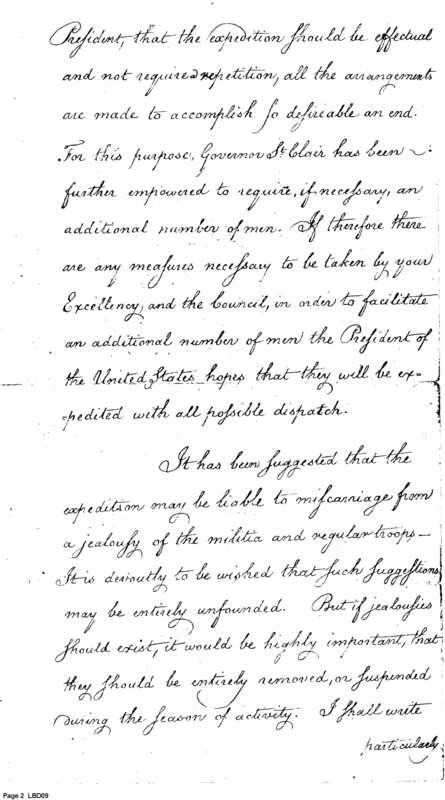 Preſident, that the expedition ſhould be effectual
and not require a repetition, all the arrangements
are made to accompliſh ſo deſireable an end.
For this purpose, Governor St. Clair has been
further empowered to require, if neceſsary, an
additional number of men. If therefore there
are any meaſures neceſsary to be taken by your
Excellency, and the Council, in order to facilitate
an additional number of men the Preſident of
the United States hopes that they will be ex=
=pedited with all poſsible dispatch.
It has been ſuggested that the
expedition may be liable to miſcarriage from
a jealouſy of the militia and regular troops—
It is devoutly to be wiſhed that ſuch ſuggeſtions
may be entirely unfounded. But if jealouſies
ſhould exist, it would be highly important, that
they ſhould be entirely removed, or ſuspended
during the ſeason of activity. I ſhall write
particularly
Page 2 LBD09